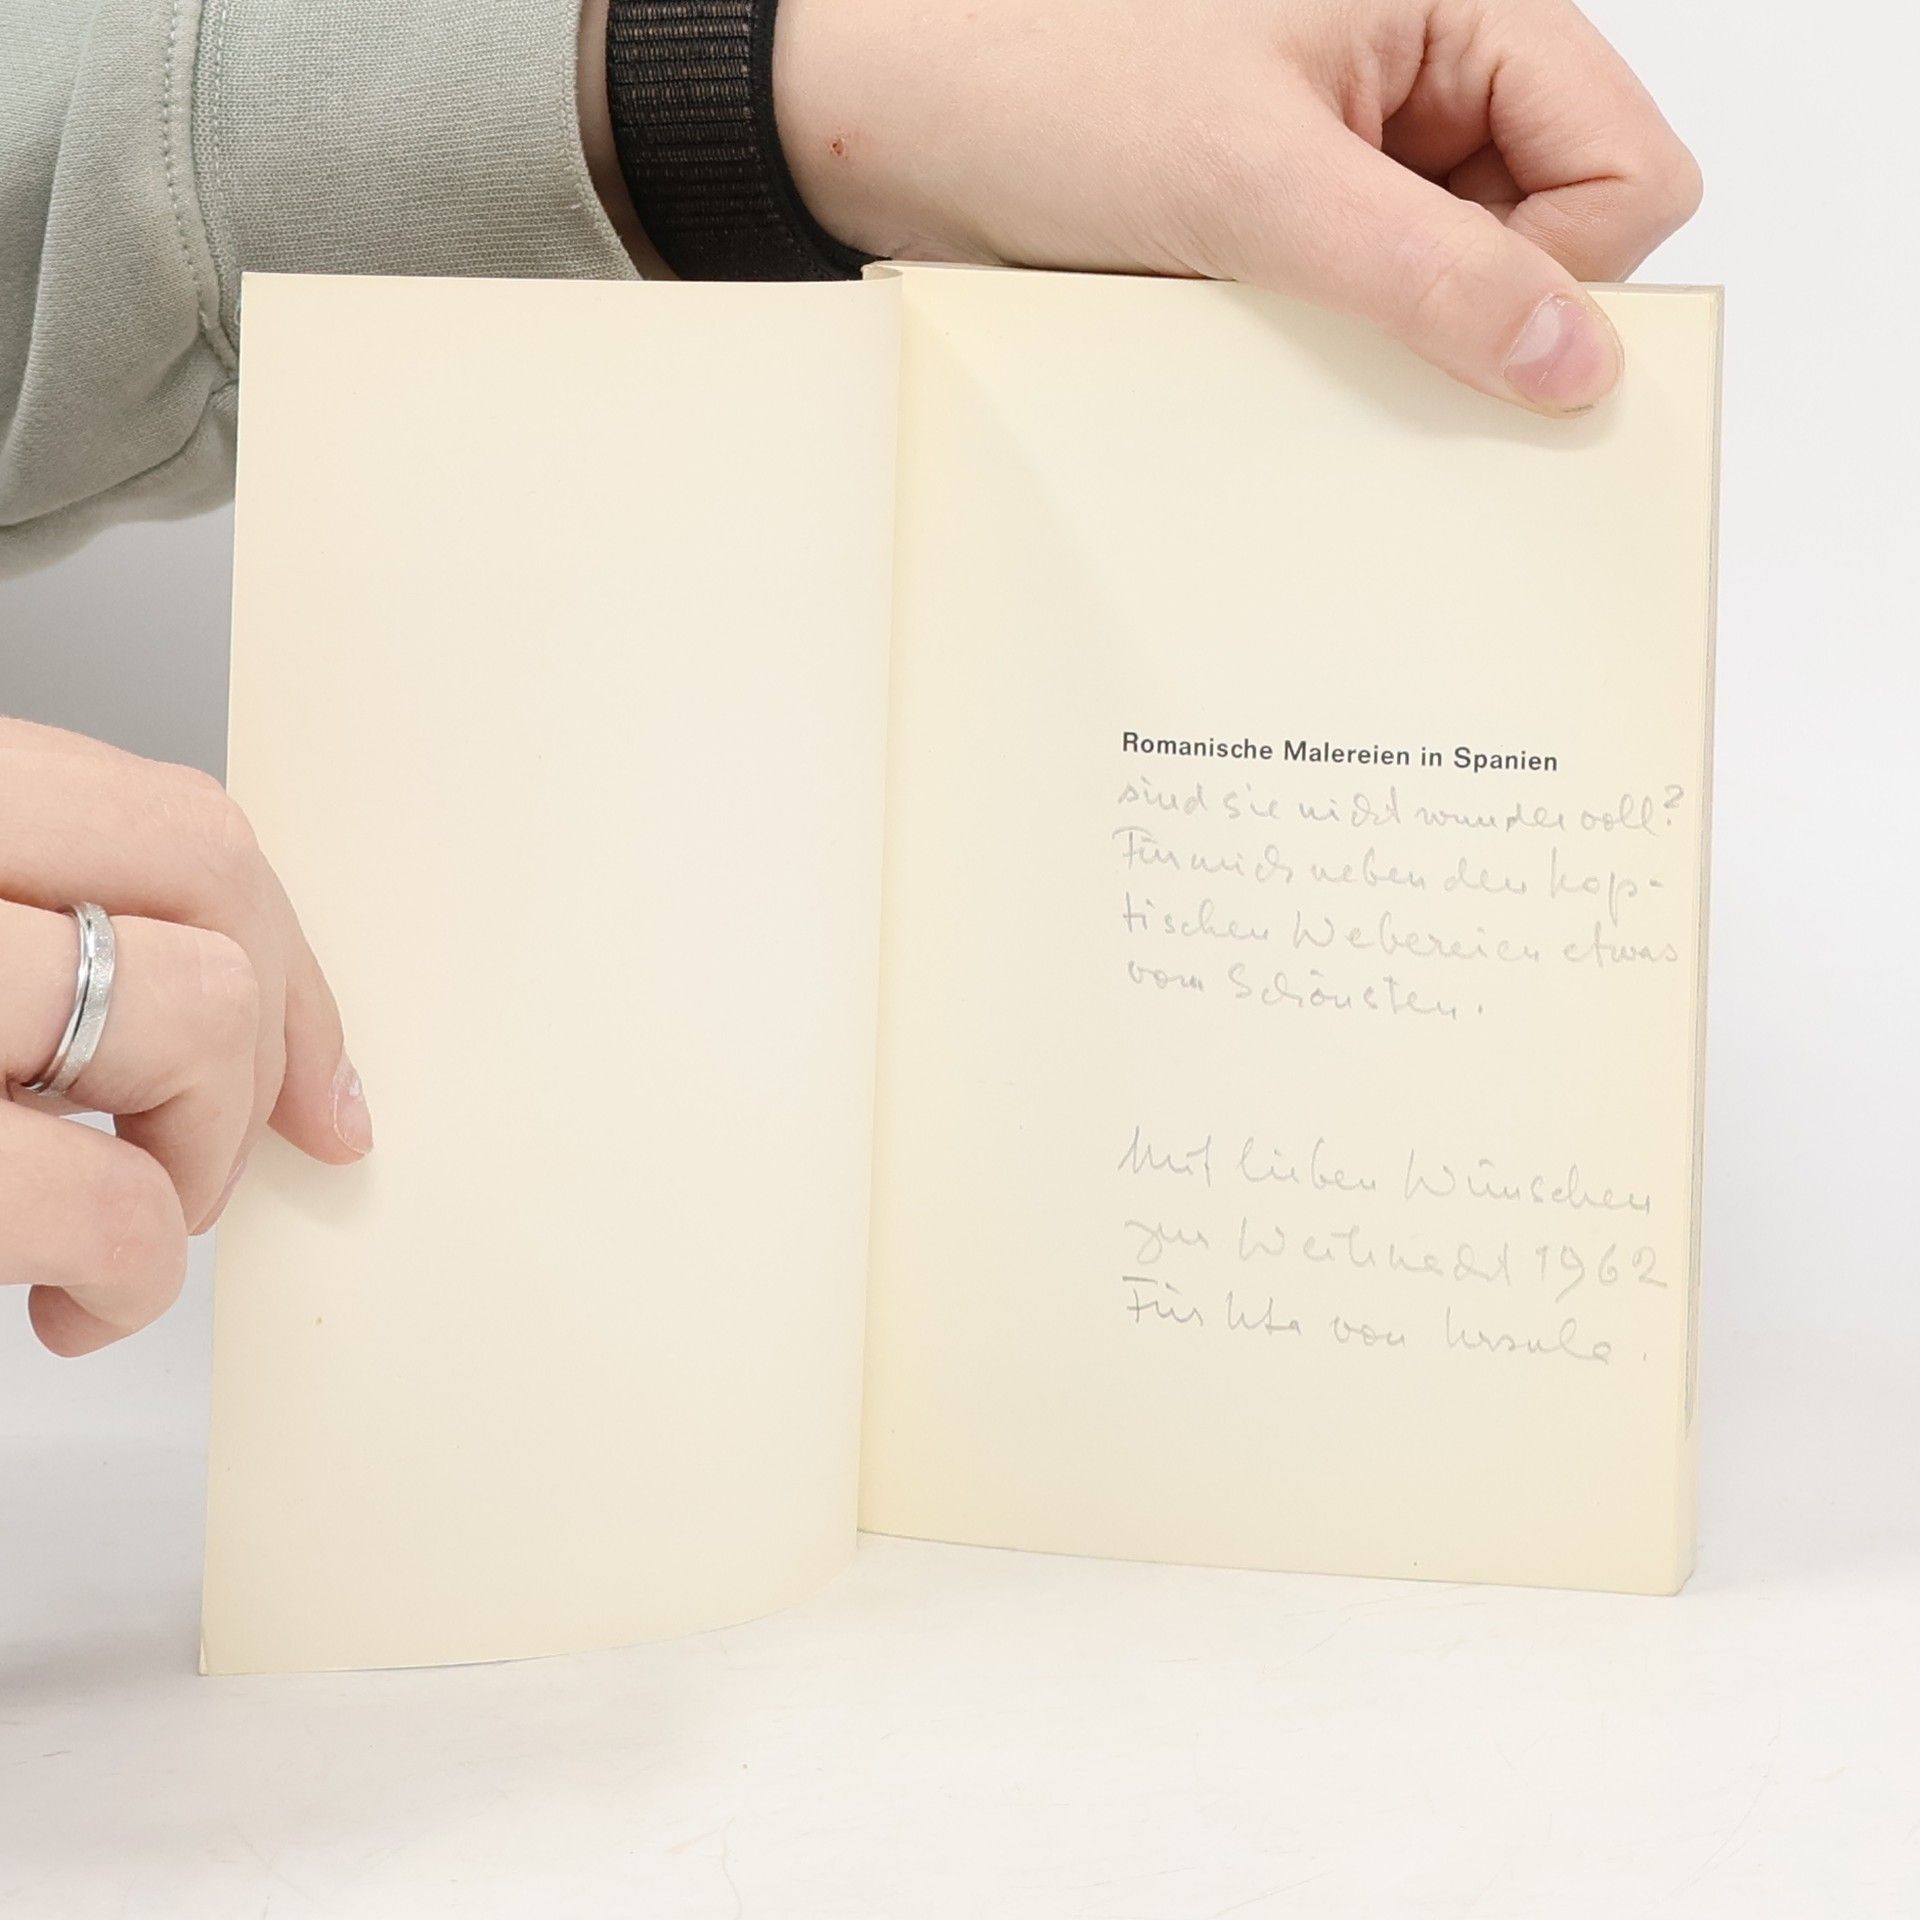 Romanische Malereien in Spanien
sind sie nicht wundervoll?
Für mich neben den kop-
tischen Webereien etwas
vom Schönsten.
Mit lieben Wünschen
zur Weihnacht 1962
Für Uta von Ursula.